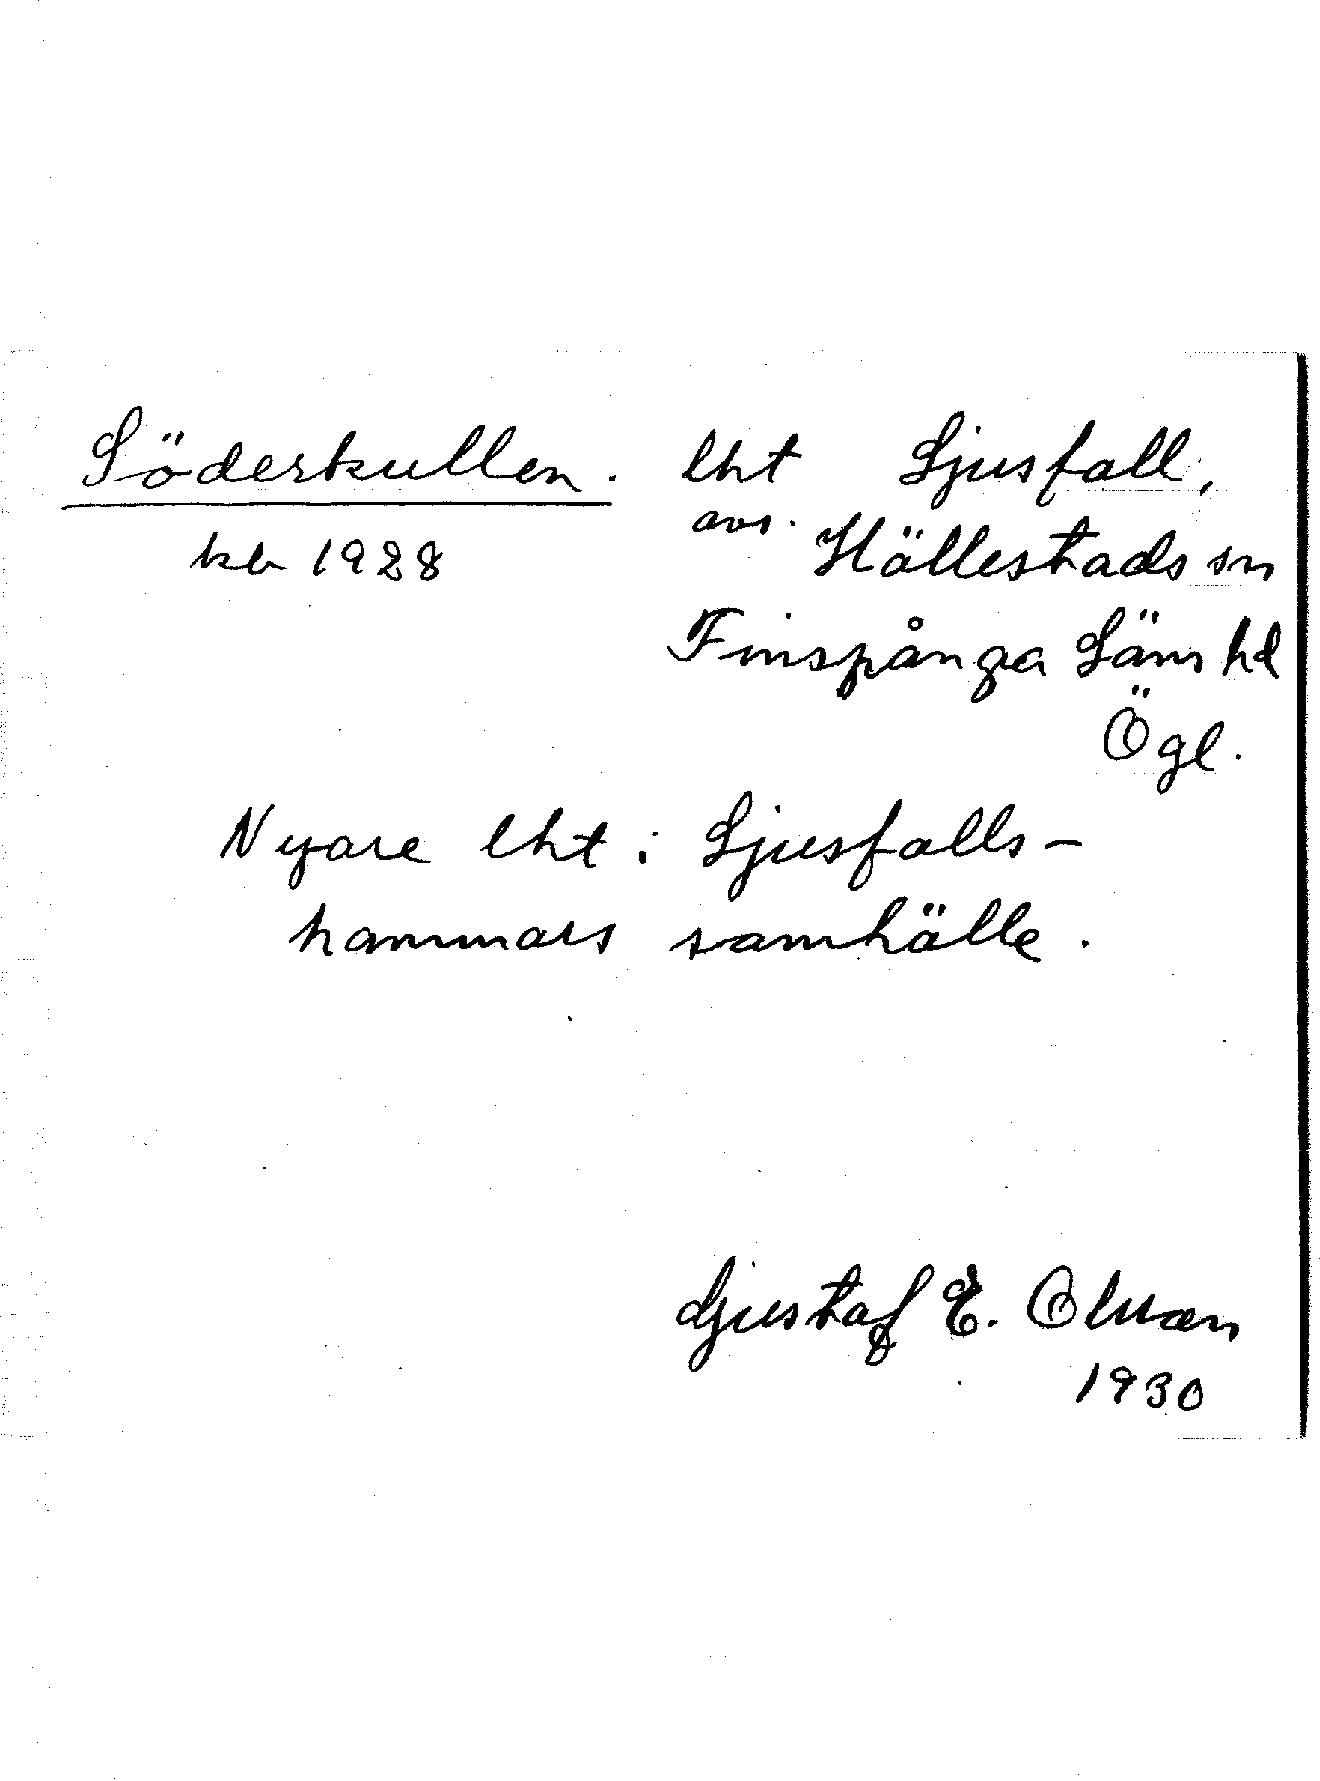 Söderkullen. lht Ljusfall,
avs.
kb 1928 Hällestads sn
Finspånga Läns hd
Ögl.
Nyare lht i Ljusfalls-
hammars samhälle.
Gustaf E. Olsson
1930